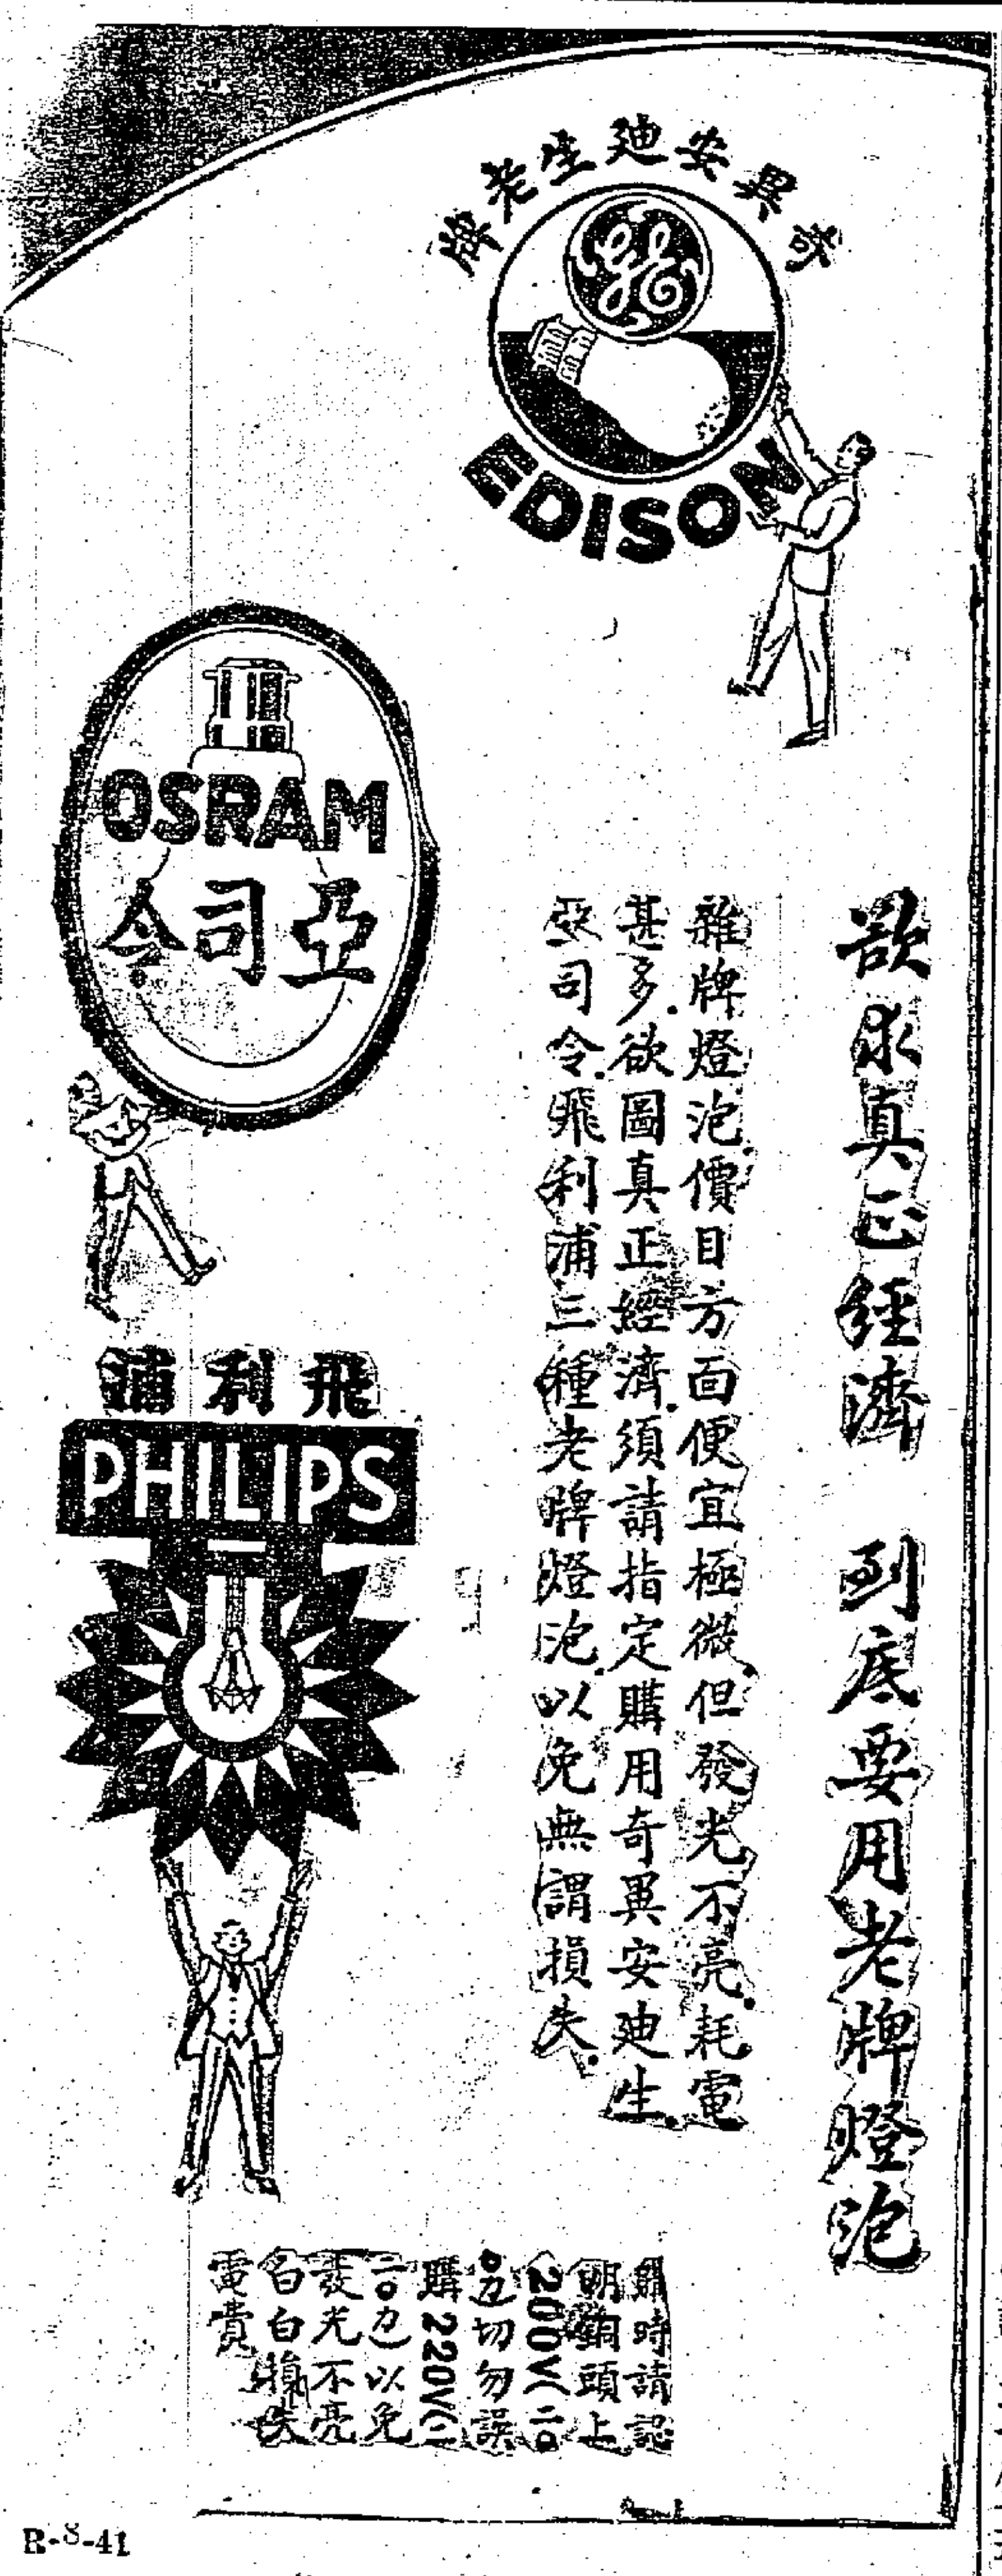 奇異安廸生老牌
GE
EDISON
OSRAM
亞司令
飛利浦
PHILIPS
欲求真正經濟 到底要用老牌燈泡
雜牌燈泡價目方面便宜極微但發光不亮耗電
甚多欲圖真正經濟須請指定購用奇異安廸生
亞司令飛利浦三種老牌燈泡以免無謂損失
購時請認
明銅頭上
200V(二〇
〇力)切勿誤
購220V(二
二〇力)以免
發光不亮
白白損失
電費
R-8-41